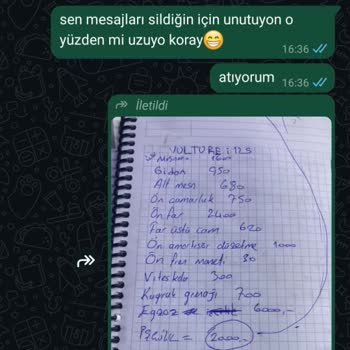 sen mesajları sildiğin için unutuyon o
yüzden mi uzuyo koray😁
16:36
atıyorum
16:36
İletildi
VULTURE i 125
1600
Gidon 950
Alt mesn 680
Ön çamurluk 750
Ön far 2400
Far üstü cam 620
Ön amortisör düzeltme 1000
Ön fren maneti 80
Vites kolu 300
Kuyruk grenajı 700
Egzoz 6000,-
İşçilik = 2000,-